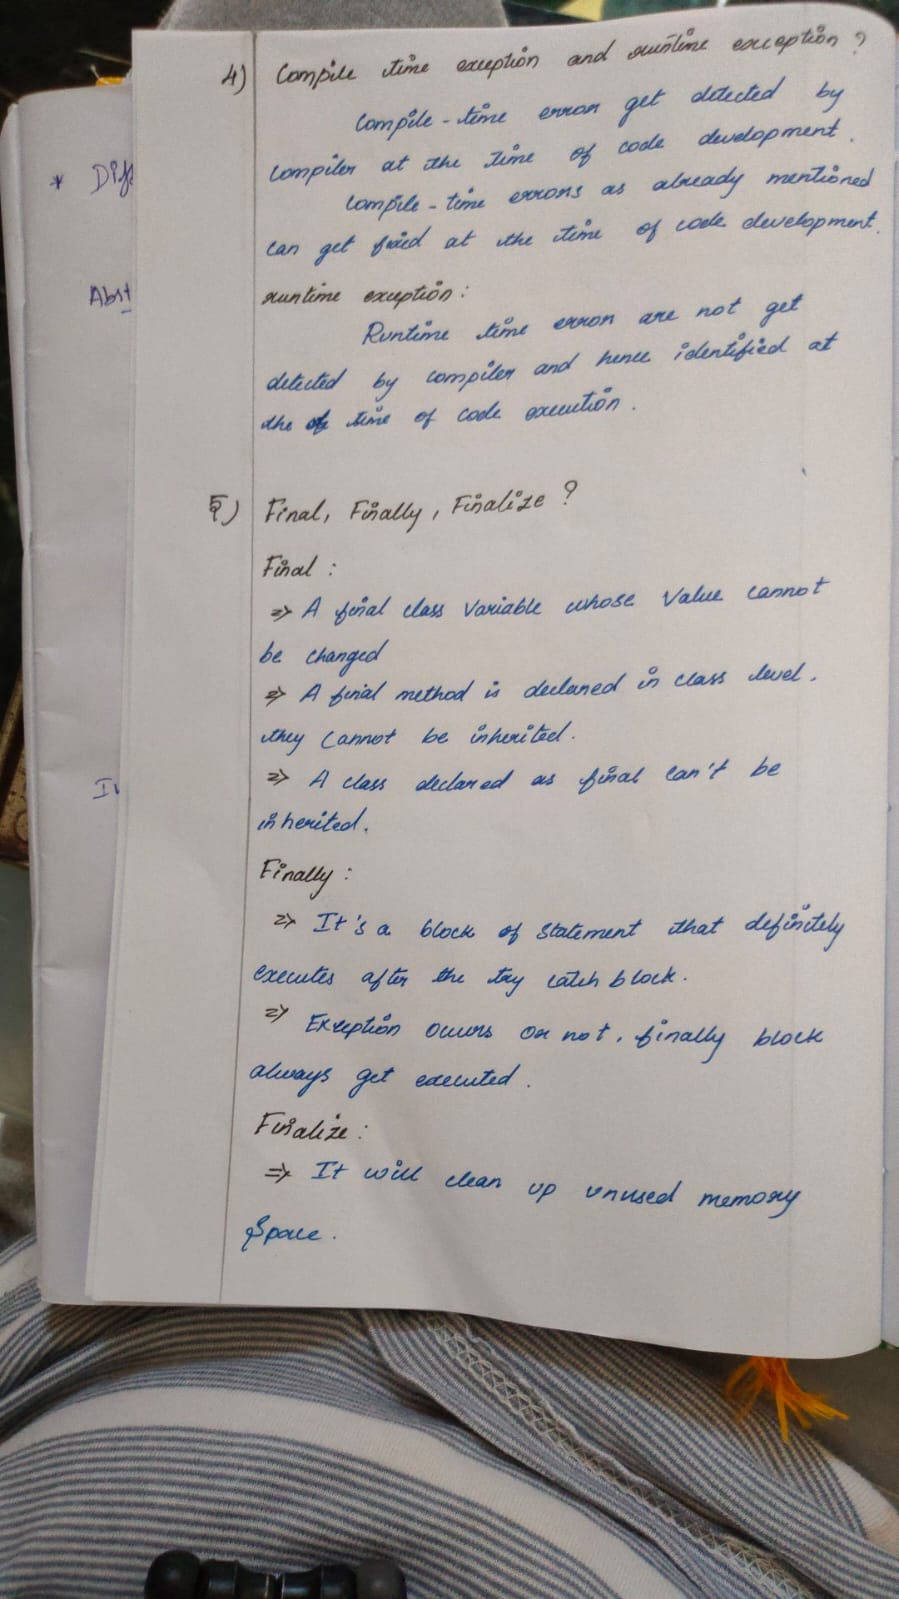 4) Compile time exception and runtime exception ?
Compile-time error get detected by
compiler at the time of code development.
* Diff
Compile-time errors as already mentioned
can get fixed at the time of code development.
Abst
runtime exception:
Runtime time error are not get
detected by compiler and hence identified at
the of time of code execution.
5) Final, Finally, Finalize ?
Final :
=> A final class Variable whose Value cannot
be changed
=> A final method is declared in class level.
they cannot be inherited.
=> A class declared as final can't be
inherited.
Finally :
=> It's a block of Statement that definitely
executes after the try catch block.
=> Exception occurs or not, finally block
always get executed.
Finalize :
=> It will clean up unused memory
Space.